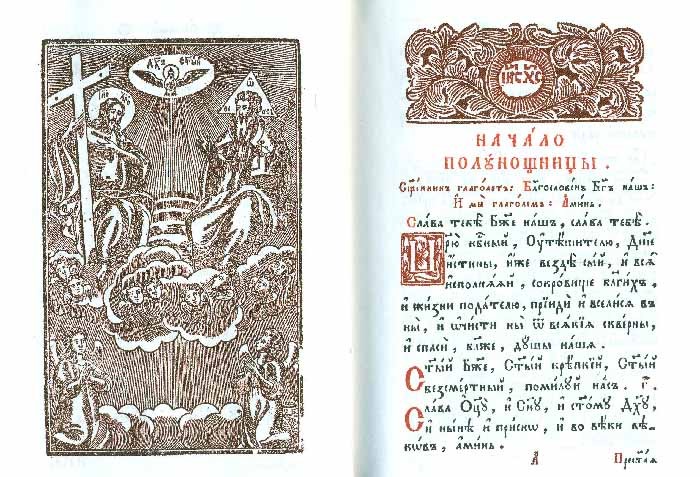 Дх҃ъ ст҃ый
І҃С Х҃С
НАЧА́ЛО
ПОЛУ́НОЩНИЦЫ.
Сщ҃е́нникъ глаго́летъ: Бл҃гослове́нъ Бг҃ъ на́шъ:
И҆ мы̀ глаго́лемъ: А҆ми́нь.
Сла́ва тебѣ̀ Бж҃е на́шъ, сла́ва тебѣ̀.
Цр҃ю̀ нб҃ный, Оу҆тѣ́шителю, Дш҃е
и҆́стины, и҆́же вездѣ̀ сы́й, и҆ всѧ̑
и҆сполнѧ́ѧй, сокро́вище бл҃ги́хъ,
и҆ жи́зни пода́телю, прїидѝ и҆ всели́сѧ въ
ны̀, и҆ ѡ҆чи́сти ны̀ ѿ всѧ́кїѧ скве́рны,
и҆ спасѝ, бл҃же, дꙋ́шы на́шѧ.
Ст҃ы́й Бж҃е, Ст҃ы́й крѣ́пкїй, Ст҃ы́й
безсме́ртный, поми́лꙋй на́съ. г҃.
Сла́ва Оц҃ꙋ̀, и҆ Сн҃ꙋ, и҆ ст҃о́мꙋ Дх҃ꙋ,
И҆ ны́нѣ и҆ при́снѡ, и҆ во вѣ́ки вѣ-
кѡ́въ, а҆ми́нь.
А҃ Прест҃а́ѧ